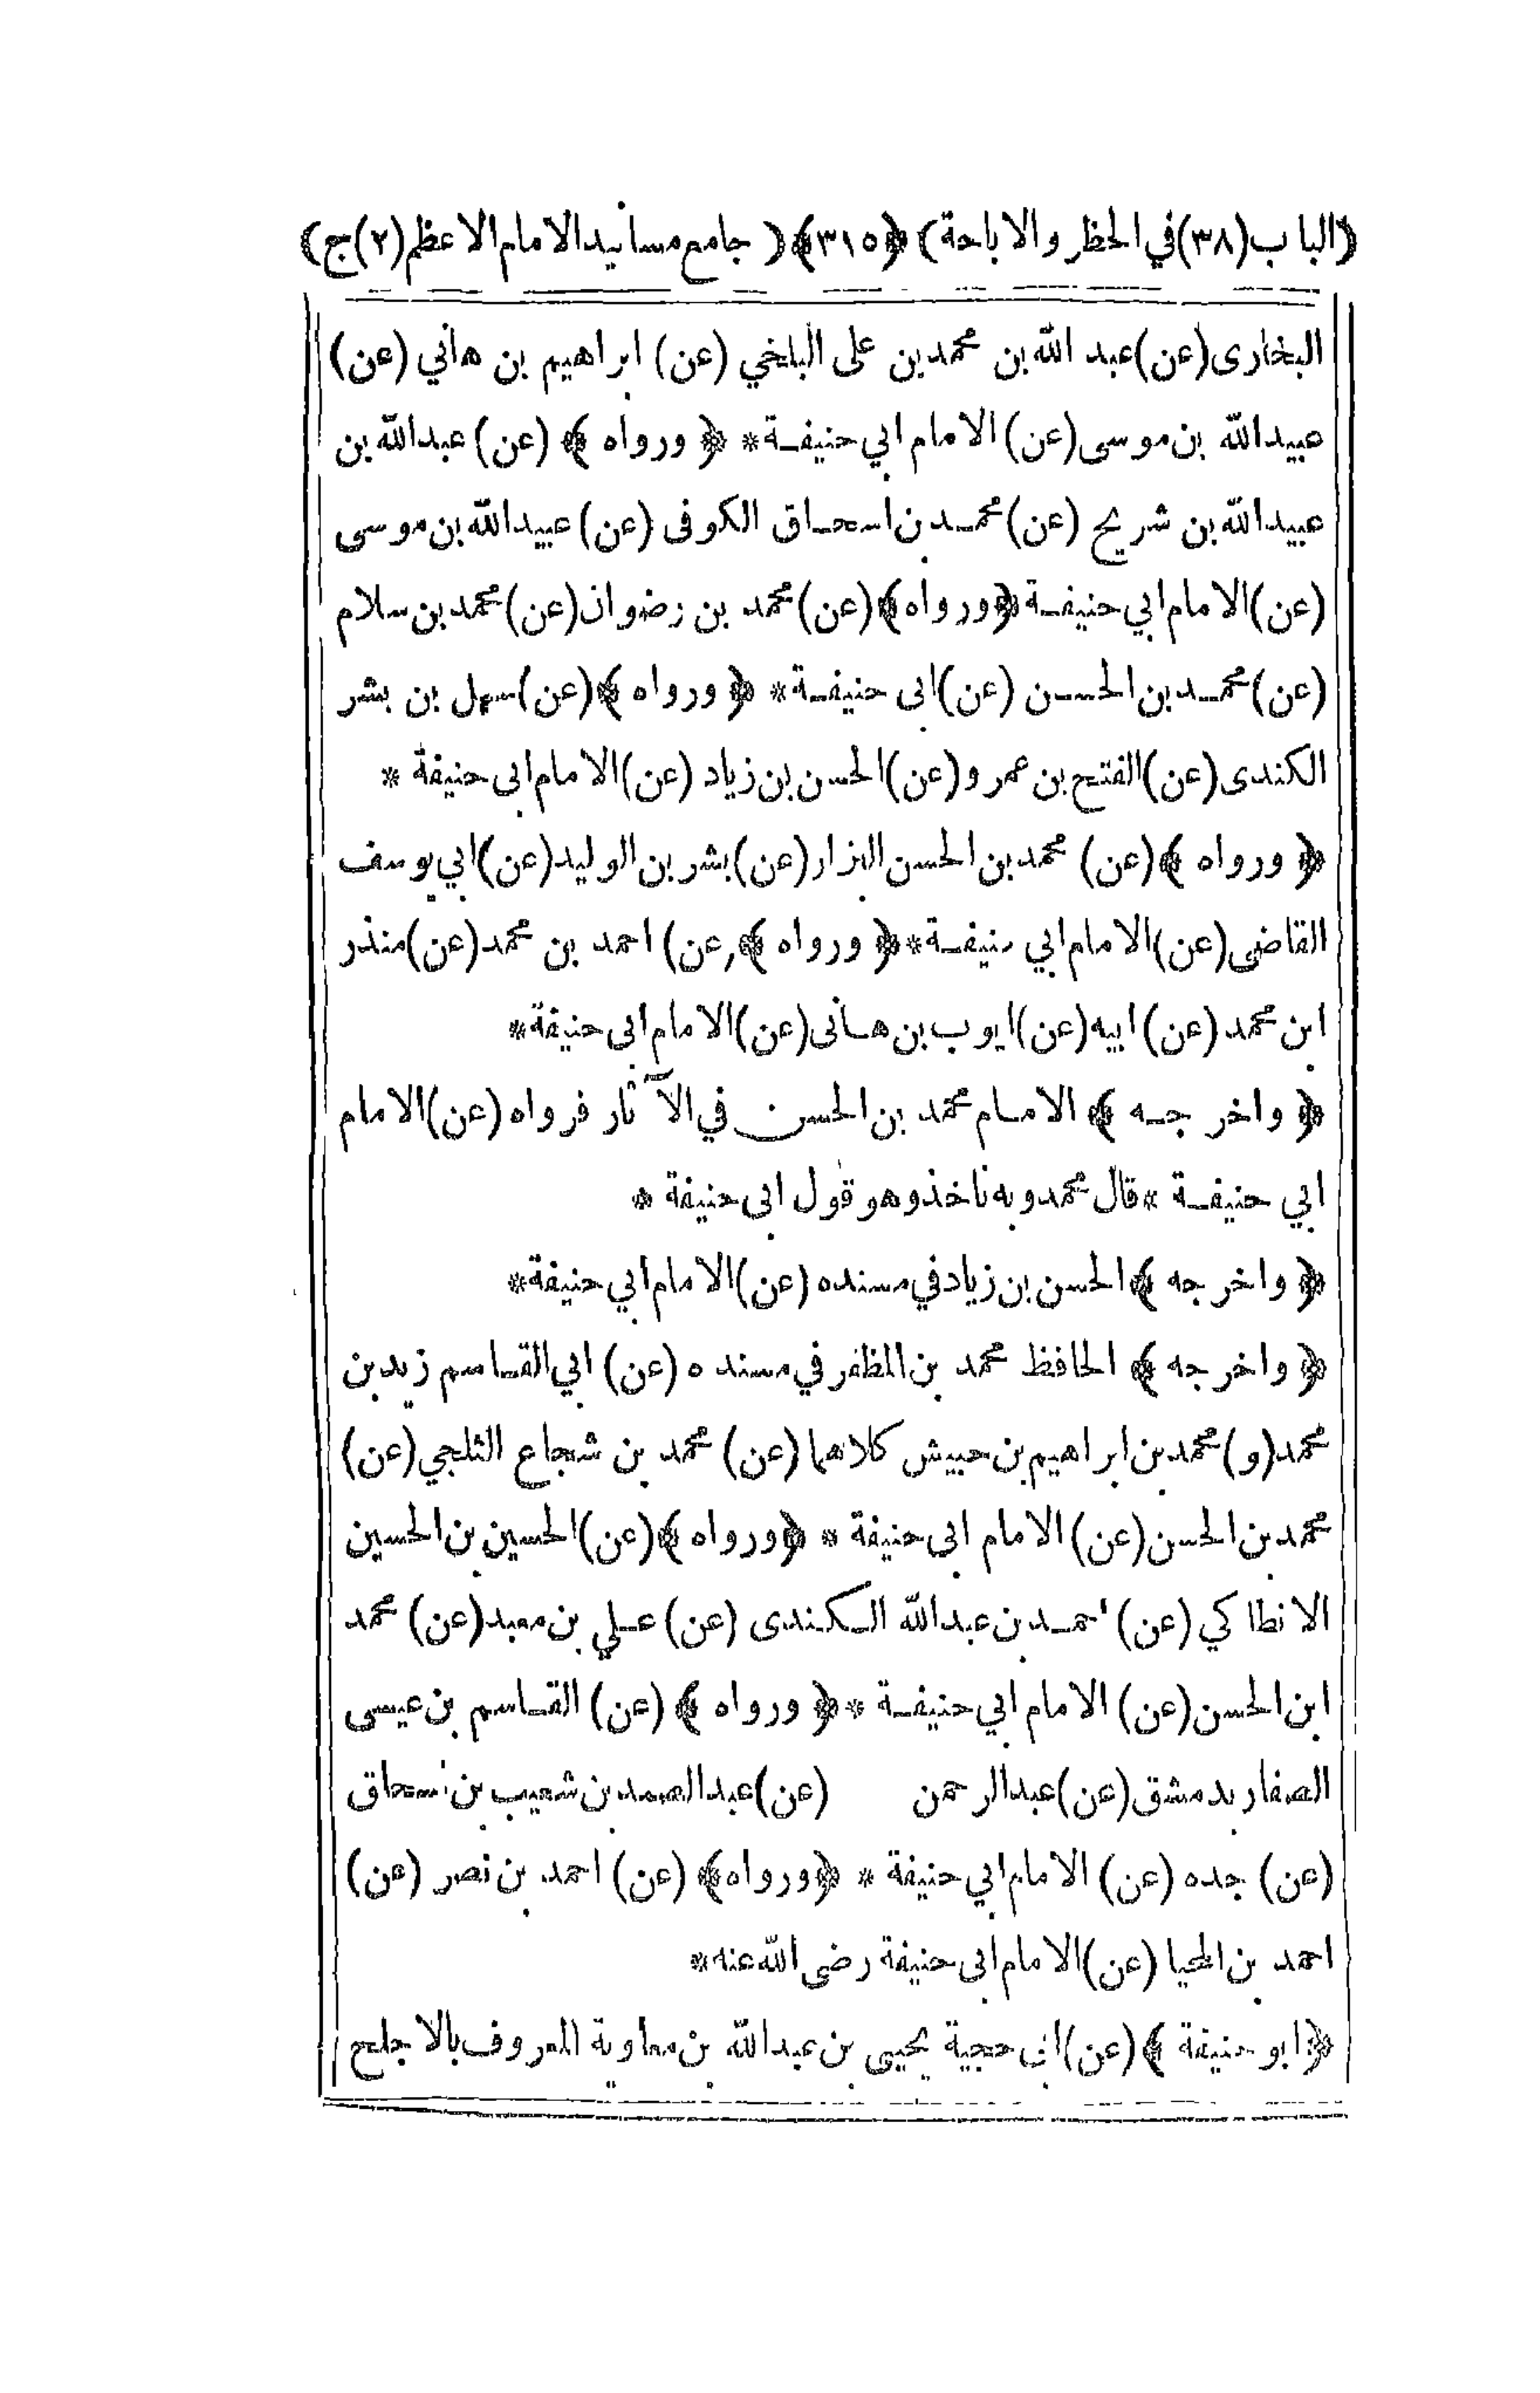 ﴿الباب(٣٨)في الحظر والاباحة﴾ ﴿٣١٥﴾ ﴿جامع مسانيد الامام الاعظم(٢)ج﴾
البخارى(عن)عبد الله بن محمد بن على البلخي (عن) ابراهيم بن هاني (عن)
عبيدالله بن موسى(عن)الامام ابي حنيفة* ﴿ ورواه ﴾ (عن) عبدالله بن
عبيدالله بن شريح (عن)محمد بن اسحاق الكوفى (عن) عبيدالله بن موسى
(عن)الامام ابي حنيفة ﴿ورواه﴾(عن)محمد بن رضوان(عن)محمد بن سلام
(عن)محمد بن الحسن (عن)ابى حنيفة* ﴿ ورواه ﴾(عن)سهل بن بشر
الكندى(عن)الفتح بن عمرو(عن)الحسن بن زياد (عن)الامام ابى حنيفة *
﴿ ورواه ﴾(عن) محمد بن الحسن البزار(عن)بشر بن الوليد(عن)ابي يوسف
القاضى(عن)الامام ابي حنيفة*﴿ ورواه ﴾(عن) احمد بن محمد(عن)منذر
ابن محمد (عن) ابيه(عن)ايوب بن هانى(عن)الامام ابى حنيفة*
﴿ واخرجه ﴾ الامام محمد بن الحسن في الآثار فرواه (عن)الامام
ابي حنيفة *قال محمد وبه ناخذ وهو قول ابى حنيفة *
﴿ واخرجه ﴾ الحسن بن زياد في مسنده (عن)الامام ابي حنيفة*
﴿ واخرجه ﴾ الحافظ محمد بن المظفر في مسنده (عن) ابي القاسم زيد بن
محمد(و)محمد بن ابراهيم بن حبيش كلاهما (عن) محمد بن شجاع الثلجي(عن)
محمد بن الحسن(عن)الامام ابى حنيفة * ﴿ورواه﴾(عن)الحسين بن الحسين
الانطاكي (عن) احمد بن عبدالله الكندى (عن) علي بن معبد(عن) محمد
ابن الحسن(عن) الامام ابي حنيفة *﴿ ورواه ﴾ (عن) القاسم بن عيسى
الصفار بدمشق(عن)عبدالرحمن (عن)عبدالصمد بن شعيب بن اسحاق
(عن) جده (عن) الامام ابي حنيفة * ﴿ورواه﴾ (عن) احمد بن نصر (عن)
احمد بن المحيا (عن)الامام ابى حنيفة رضى الله عنه*
﴿ابو حنيفة ﴾(عن)ابى حجية يحيى بن عبدالله بن معاوية المعروف بالاجلح